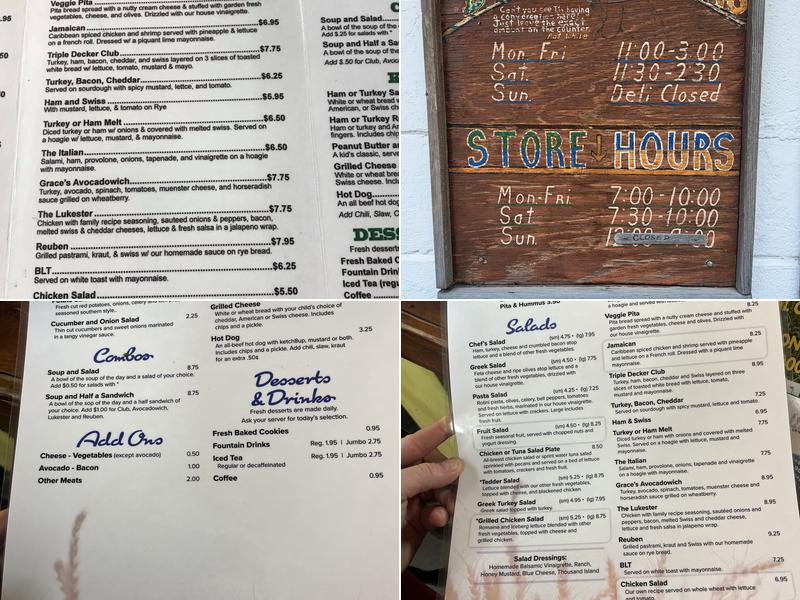 Veggie Pita
Pita bread spread with a nutty cream cheese & stuffed with garden fresh
vegetables, cheese, and olives. Drizzled with our house vinaigrette.
Jamaican $6.95
Caribbean spiced chicken and shrimp served with pineapple & lettuce
on a french roll. Dressed w/ a piquant lime mayonnaise.
Triple Decker Club $7.75
Turkey, ham, bacon, cheddar, and swiss layered on 3 slices of toasted
white bread w/ lettuce, tomato, mustard & mayo.
Turkey, Bacon, Cheddar $6.25
Served on sourdough with spicy mustard, lettuce, and tomato.
Ham and Swiss $5.95
With mustard, lettuce, & tomato on Rye
Turkey or Ham Melt $6.50
Diced turkey or ham w/ onions & covered with melted swiss. Served on
a hoagie w/ lettuce, mustard, & mayonnaise.
The Italian $6.50
Salami, ham, provolone, onions, tapenade, and vinaigrette on a hoagie
with mayonnaise.
Grace's Avocadowich $7.75
Turkey, avocado, spinach, tomatoes, muenster cheese, and horseradish
sauce grilled on wheatberry.
The Lukester $7.75
Chicken with family recipe seasoning, sauteed onions & peppers, bacon,
melted swiss & cheddar cheeses, lettuce & fresh salsa in a jalapeno wrap.
Reuben $7.95
Grilled pastrami, kraut, & swiss w/ our homemade sauce on rye bread.
BLT $6.25
Served on white toast with mayonnaise.
Chicken Salad $5.50
Soup and Salad
A bowl of the soup of the
Add $.25 for salads with *
Soup and Half a Sa
A bowl of the soup of the
Add $.50 for Club, Avoca
Ham or Turkey Sa
White or wheat bread
American, or Swiss ch
Ham or Turkey R
Ham or turkey and Am
fingers. Includes chip
Peanut Butter an
A kid's classic, serve
Grilled Cheese
White or wheat brea
Swiss cheese. Inclu
Hot Dog
An all beef hot dog
Add Chili, Slaw, C
DESS
Fresh desserts
Fresh Baked C
Fountain Drin
Iced Tea (regu
Coffee
Can't you see I'm having
a conversation here!
Just leave the exact
amount on the counter.
Mon-Fri 11:00-3:00
Sat. 11:30-2:30
Sun. Deli Closed
STORE ↓ HOURS
Mon-Fri. 7:00-10:00
Sat 7:30-10:00
Sun. CLOSED
Fresh cut red potatoes, onions, celery
seasoned southern style.
Cucumber and Onion Salad 2.25
Thin cut cucumbers and sweet onions marinated
in a tangy vinegar sauce.
Combos
Soup and Salad 8.75
A bowl of the soup of the day and a salad of your choice.
Add $0.50 for salads with *
Soup and Half a Sandwich 8.75
A bowl of the soup of the day and a half sandwich of
your choice. Add $1.00 for Club, Avocadowich,
Lukester and Reuben.
Add Ons
Cheese - Vegetables (except avocado) 0.50
Avocado - Bacon 1.00
Other Meats 2.00
Grilled Cheese
White or wheat bread with your child's choice of
cheddar, American or Swiss cheese. Includes
chips and a pickle.
Hot Dog 3.25
An all-beef hot dog with ketchup, mustard or both.
Includes chips and a pickle. Add chili, slaw, kraut
for an extra .50¢
Desserts
& Drinks
Fresh desserts are made daily.
Ask your server for today's selection.
Fresh Baked Cookies 0.95
Fountain Drinks Reg. 1.95 | Jumbo 2.75
Iced Tea Reg. 1.95 | Jumbo 2.75
Regular or decaffeinated
Coffee 0.95
Pita & Hummus 3.95
Salads
Chef's Salad (sm) 4.75 • (lg) 7.95
Ham, turkey, cheese and crumbled bacon atop
lettuce and a blend of other fresh vegetables.
Greek Salad (sm) 4.50 • (lg) 7.75
Feta cheese and ripe olives atop lettuce and a
blend of other fresh vegetables, drizzled with
our house vinaigrette.
Pasta Salad (sm) 4.25 • (lg) 7.25
Rotini pasta, olives, celery, bell peppers, tomatoes
and fresh herbs, marinated in our house vinaigrette.
Served on lettuce with crackers. Large includes
fresh fruit.
Fruit Salad (sm) 4.50 • (lg) 8.25
Fresh seasonal fruit, served with chopped nuts and
yogurt dressing.
Chicken or Tuna Salad Plate 8.50
All-breast chicken salad or sprint water tuna salad
sprinkled with pecans and served on a bed of lettuce
with tomatoes, crackers and fresh fruit.
*Tedder Salad (sm) 5.25 • (lg) 8.75
Lettuce blended with our other fresh vegetables,
topped with cheese, and blackened chicken.
Greek Turkey Salad (sm) 4.95 • (lg) 7.95
Greek salad topped with turkey.
*Grilled Chicken Salad (sm) 5.25 • (lg) 8.75
Romaine and Iceberg lettuce blended with other
fresh vegetables, topped with cheese and
grilled chicken.
Salad Dressings:
Homemade Balsamic Vinaigrette, Ranch,
Honey Mustard, Blue Cheese, Thousand Island
a hoagie with lettuce and
Veggie Pita 8.25
Pita bread spread with a nutty cream cheese and stuffed with
garden fresh vegetables, cheese, and olives. Drizzled with our
house vinaigrette.
Jamaican 8.25
Caribbean spiced chicken and shrimp served with pineapple
and lettuce on a French Roll. Dressed with a piquant lime
mayonnaise.
Triple Decker Club 8.95
Turkey, ham, bacon, cheddar and Swiss layered on three
slices of toasted white bread with lettuce, tomato,
mustard and mayo.
Turkey, Bacon, Cheddar 7.25
Served on sourdough with spicy mustard, lettuce and tomato.
Ham & Swiss 6.95
Turkey or Ham Melt 7.75
Diced turkey or ham with onions and covered with melted
Swiss. Served on a hoagie with lettuce, mustard and
mayonnaise.
The Italian 7.75
Salami, ham, provolone, onions, tapenade and vinaigrette
on a hoagie with mayonnaise.
Grace's Avocadowich 8.95
Turkey, avocado, spinach, tomatoes, muenster cheese,
and horseradish sauce grilled on wheatberry.
The Lukester 8.95
Chicken with family recipe seasoning, sautéed onions and
peppers, bacon, melted Swiss and cheddar cheeses, lettuce
and fresh salsa in jalapeño wrap.
Reuben 9.25
Grilled pastrami, kraut and Swiss with our homemade
sauce on rye bread.
BLT 7.25
Served on white toast with mayonnaise.
Chicken Salad 6.95
Our own recipe served on whole wheat with lettuce
and tomato.